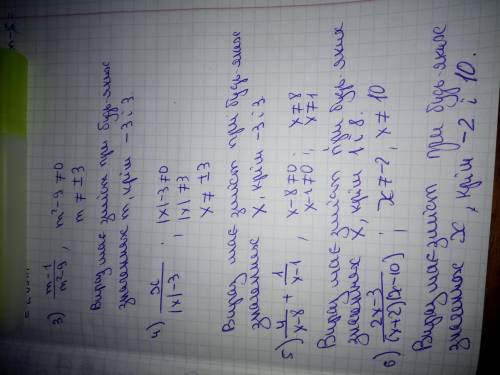 3) \frac{m-1}{m²-9} , m²-9≠0
m≠±3
Вираз має зміст при будь-яких
значеннях m, крім -3 і 3
4) \frac{x}{|x|-3} ; |x|-3≠0
|x|≠3
x≠±3
Вираз має зміст при будь-яких
значеннях x, крім -3 і 3.
5) \frac{4}{x-8} + \frac{1}{x-1} , x-8≠0 ; x≠8
x-1≠0 ; x≠1
Вираз має зміст при будь-яких
значеннях x, крім 1 і 8.
6) \frac{2x-3}{(x+2)(x-10)} ; x≠-2, x≠10
Вираз має зміст при будь-яких
значеннях x, крім -2 і 10.